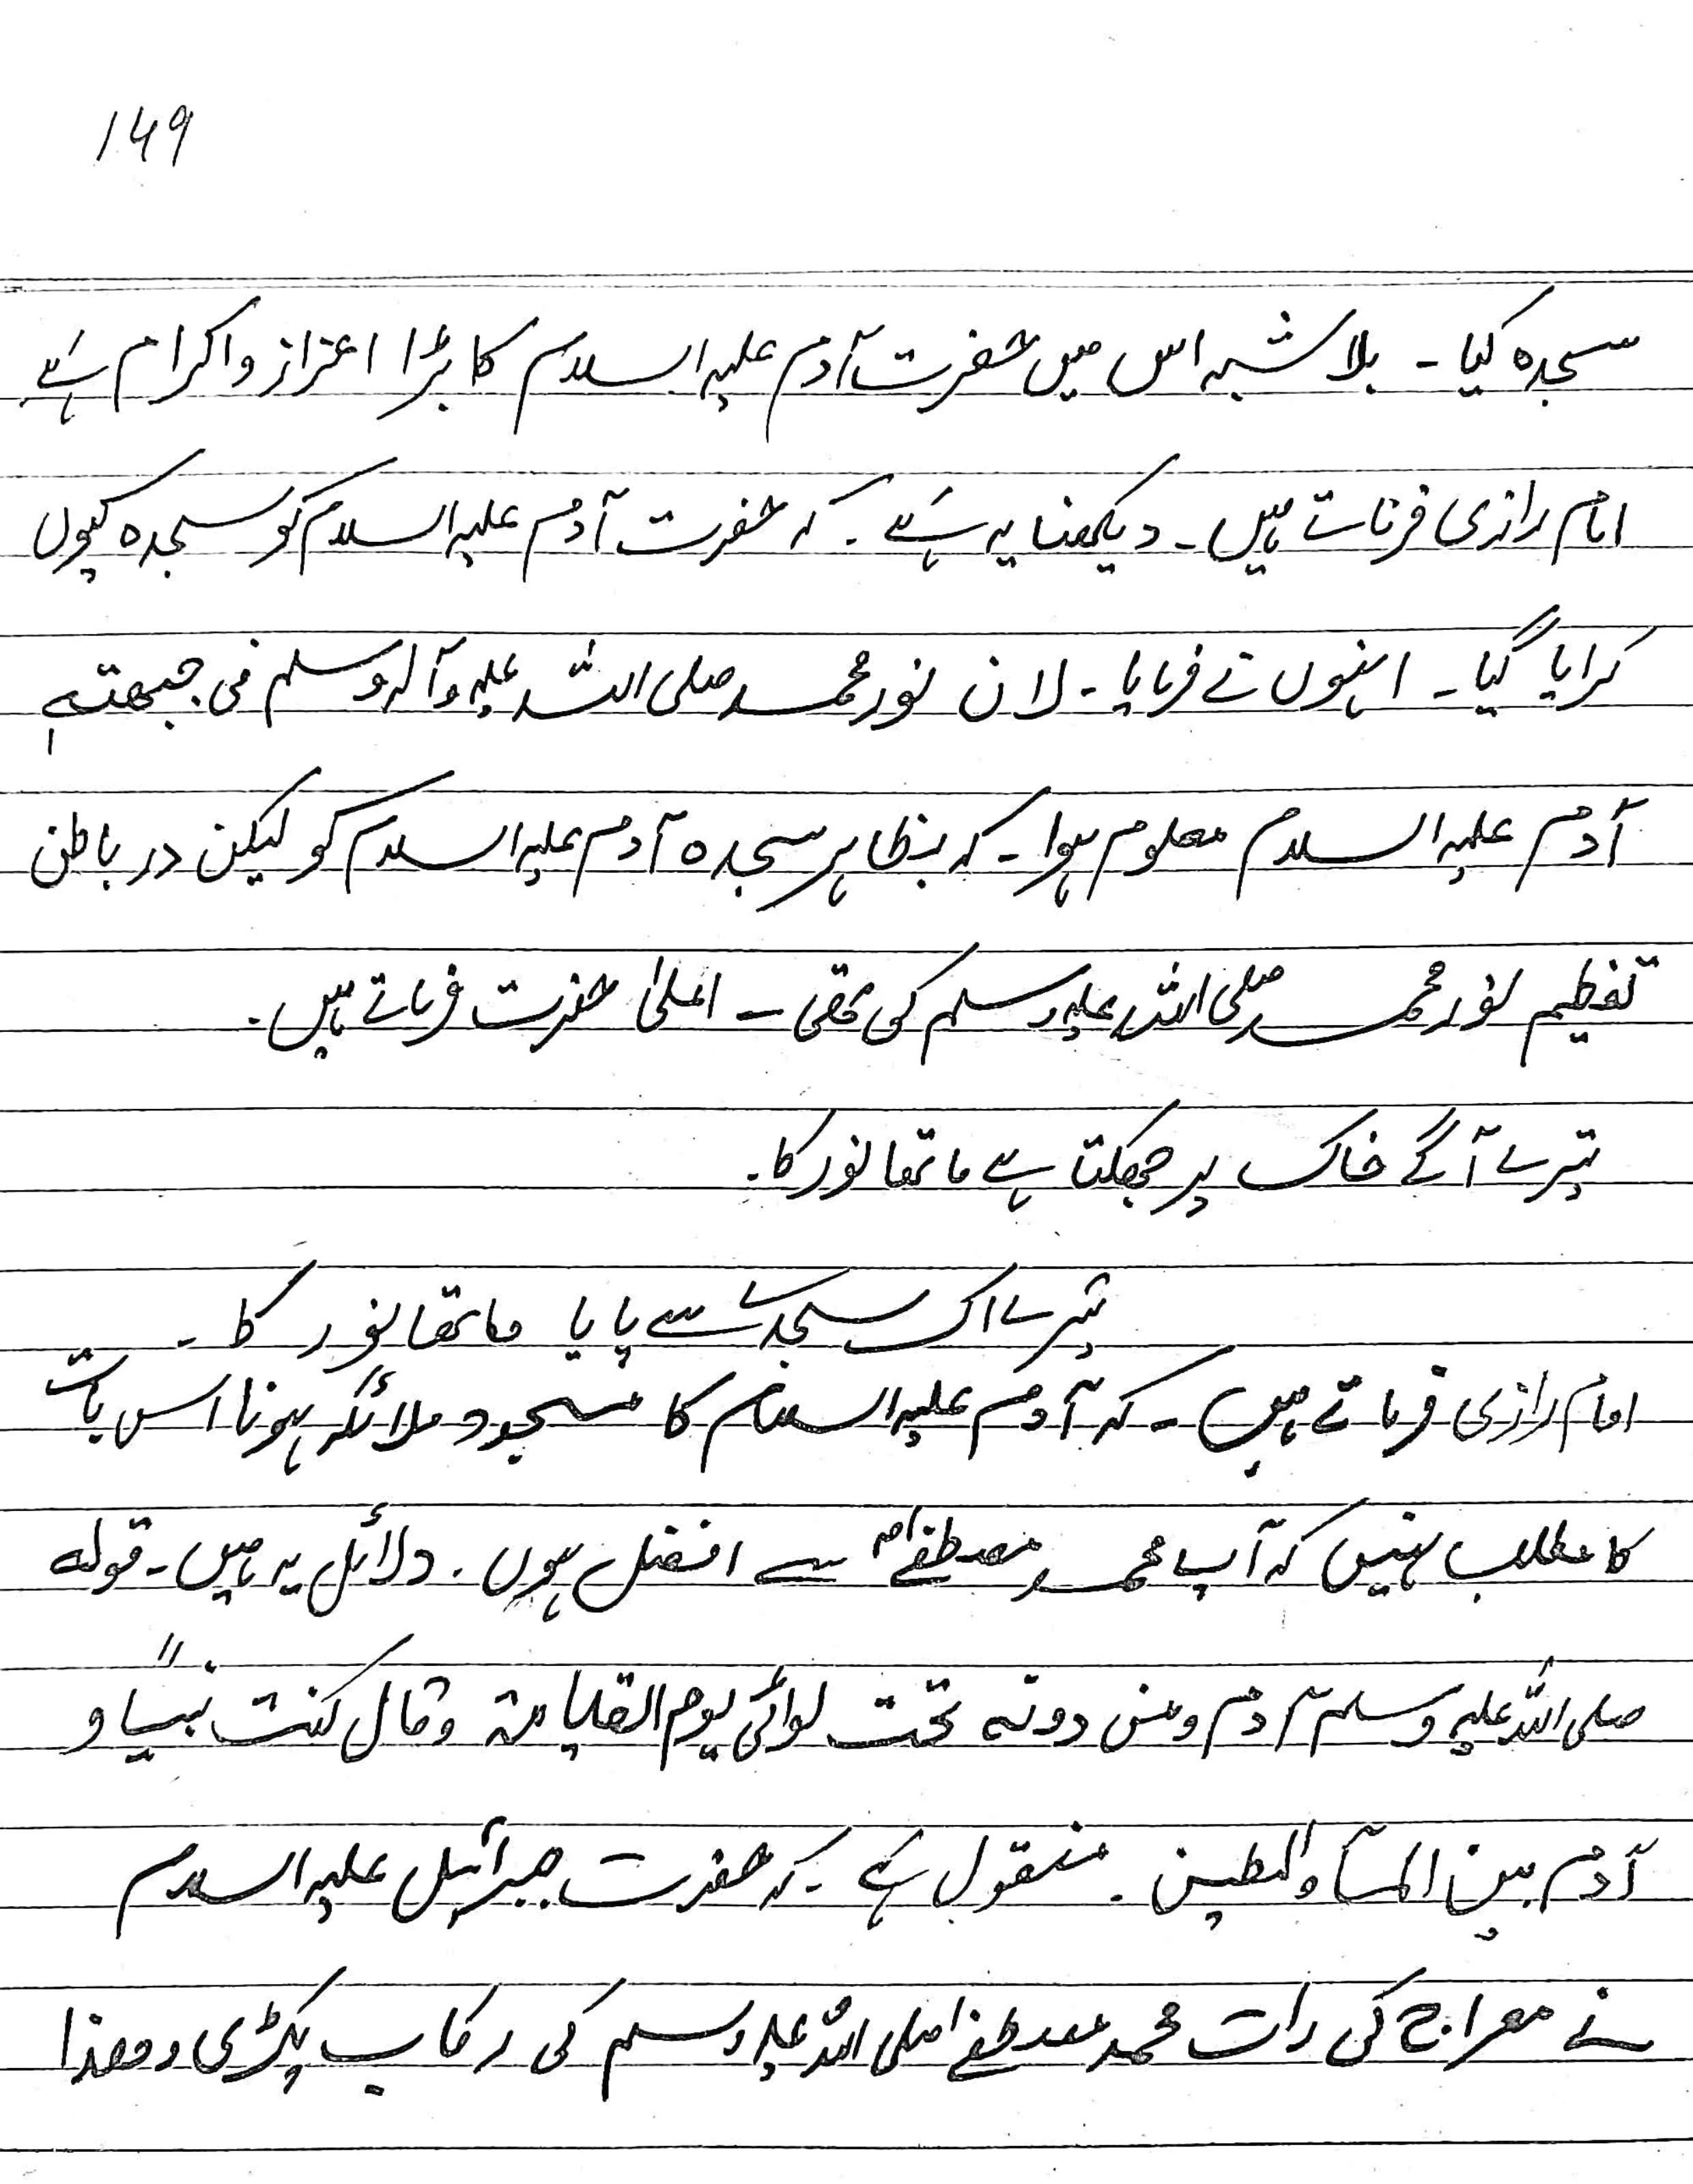 ۱۴۹
سجدہ کیا ۔ بلا شبہ اس میں حضرت آدم علیہ السلام کا بڑا اعزاز و اکرام ہے
امام رازی فرماتے ہیں ۔ دیکھنا یہ ہے ۔ کہ حضرت آدم علیہ السلام کو سجدہ کیوں
کرایا گیا ۔ انہوں نے فرمایا ۔ لان نور محمد صلی اللہ علیہ وآلہ وسلم فی جبھتہٖ
آدم علیہ السلام معلوم ہوا ۔ کہ بظاہر سجدہ آدم علیہ السلام کو لیکن در باطن
تعظیم نور محمد صلی اللہ علیہ وسلم کی تھی ۔ اعلیٰ حضرت فرماتے ہیں ۔
تیرے آگے خاک پر جھکتا ہے ماتھا نور کا ۔
تیرے اک سجدے سے پایا ماتھا نور کا ۔
امام رازی فرماتے ہیں ۔ کہ آدم علیہ السلام کا مسجود ملائکہ ہونا اس بات
کا مطلب نہیں کہ آپ محمد مصطفےٰ ؐ سے افضل ہوں ۔ دلائل یہ ہیں ۔ قولہ
صلی اللہ علیہ وسلم آدم ومن دونہ تحت لوائی یوم القیامۃ وقال کنت نبیاً و
آدم بین المآ والطین ۔ منقول ہے ۔ کہ حضرت جبرائیل علیہ السلام
نے معراج کی رات محمد مصطفےٰ صلی اللہ علیہ وسلم کی رکاب پکڑی وھذا